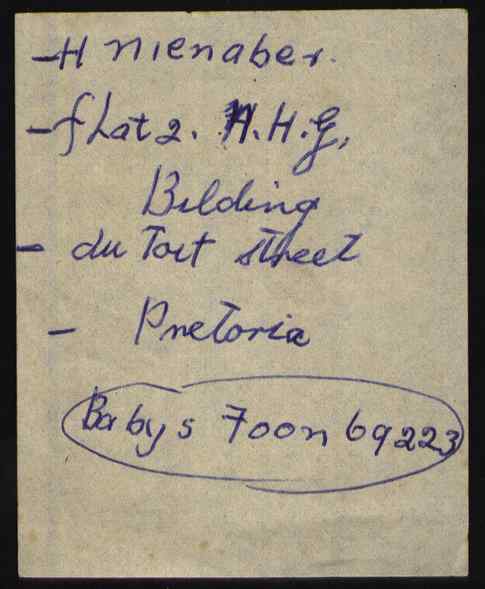 - H nienaber.
- flat 2. A.H.G,
Bilding
- du Toit street
- Pretoria
Babys Foon 69223